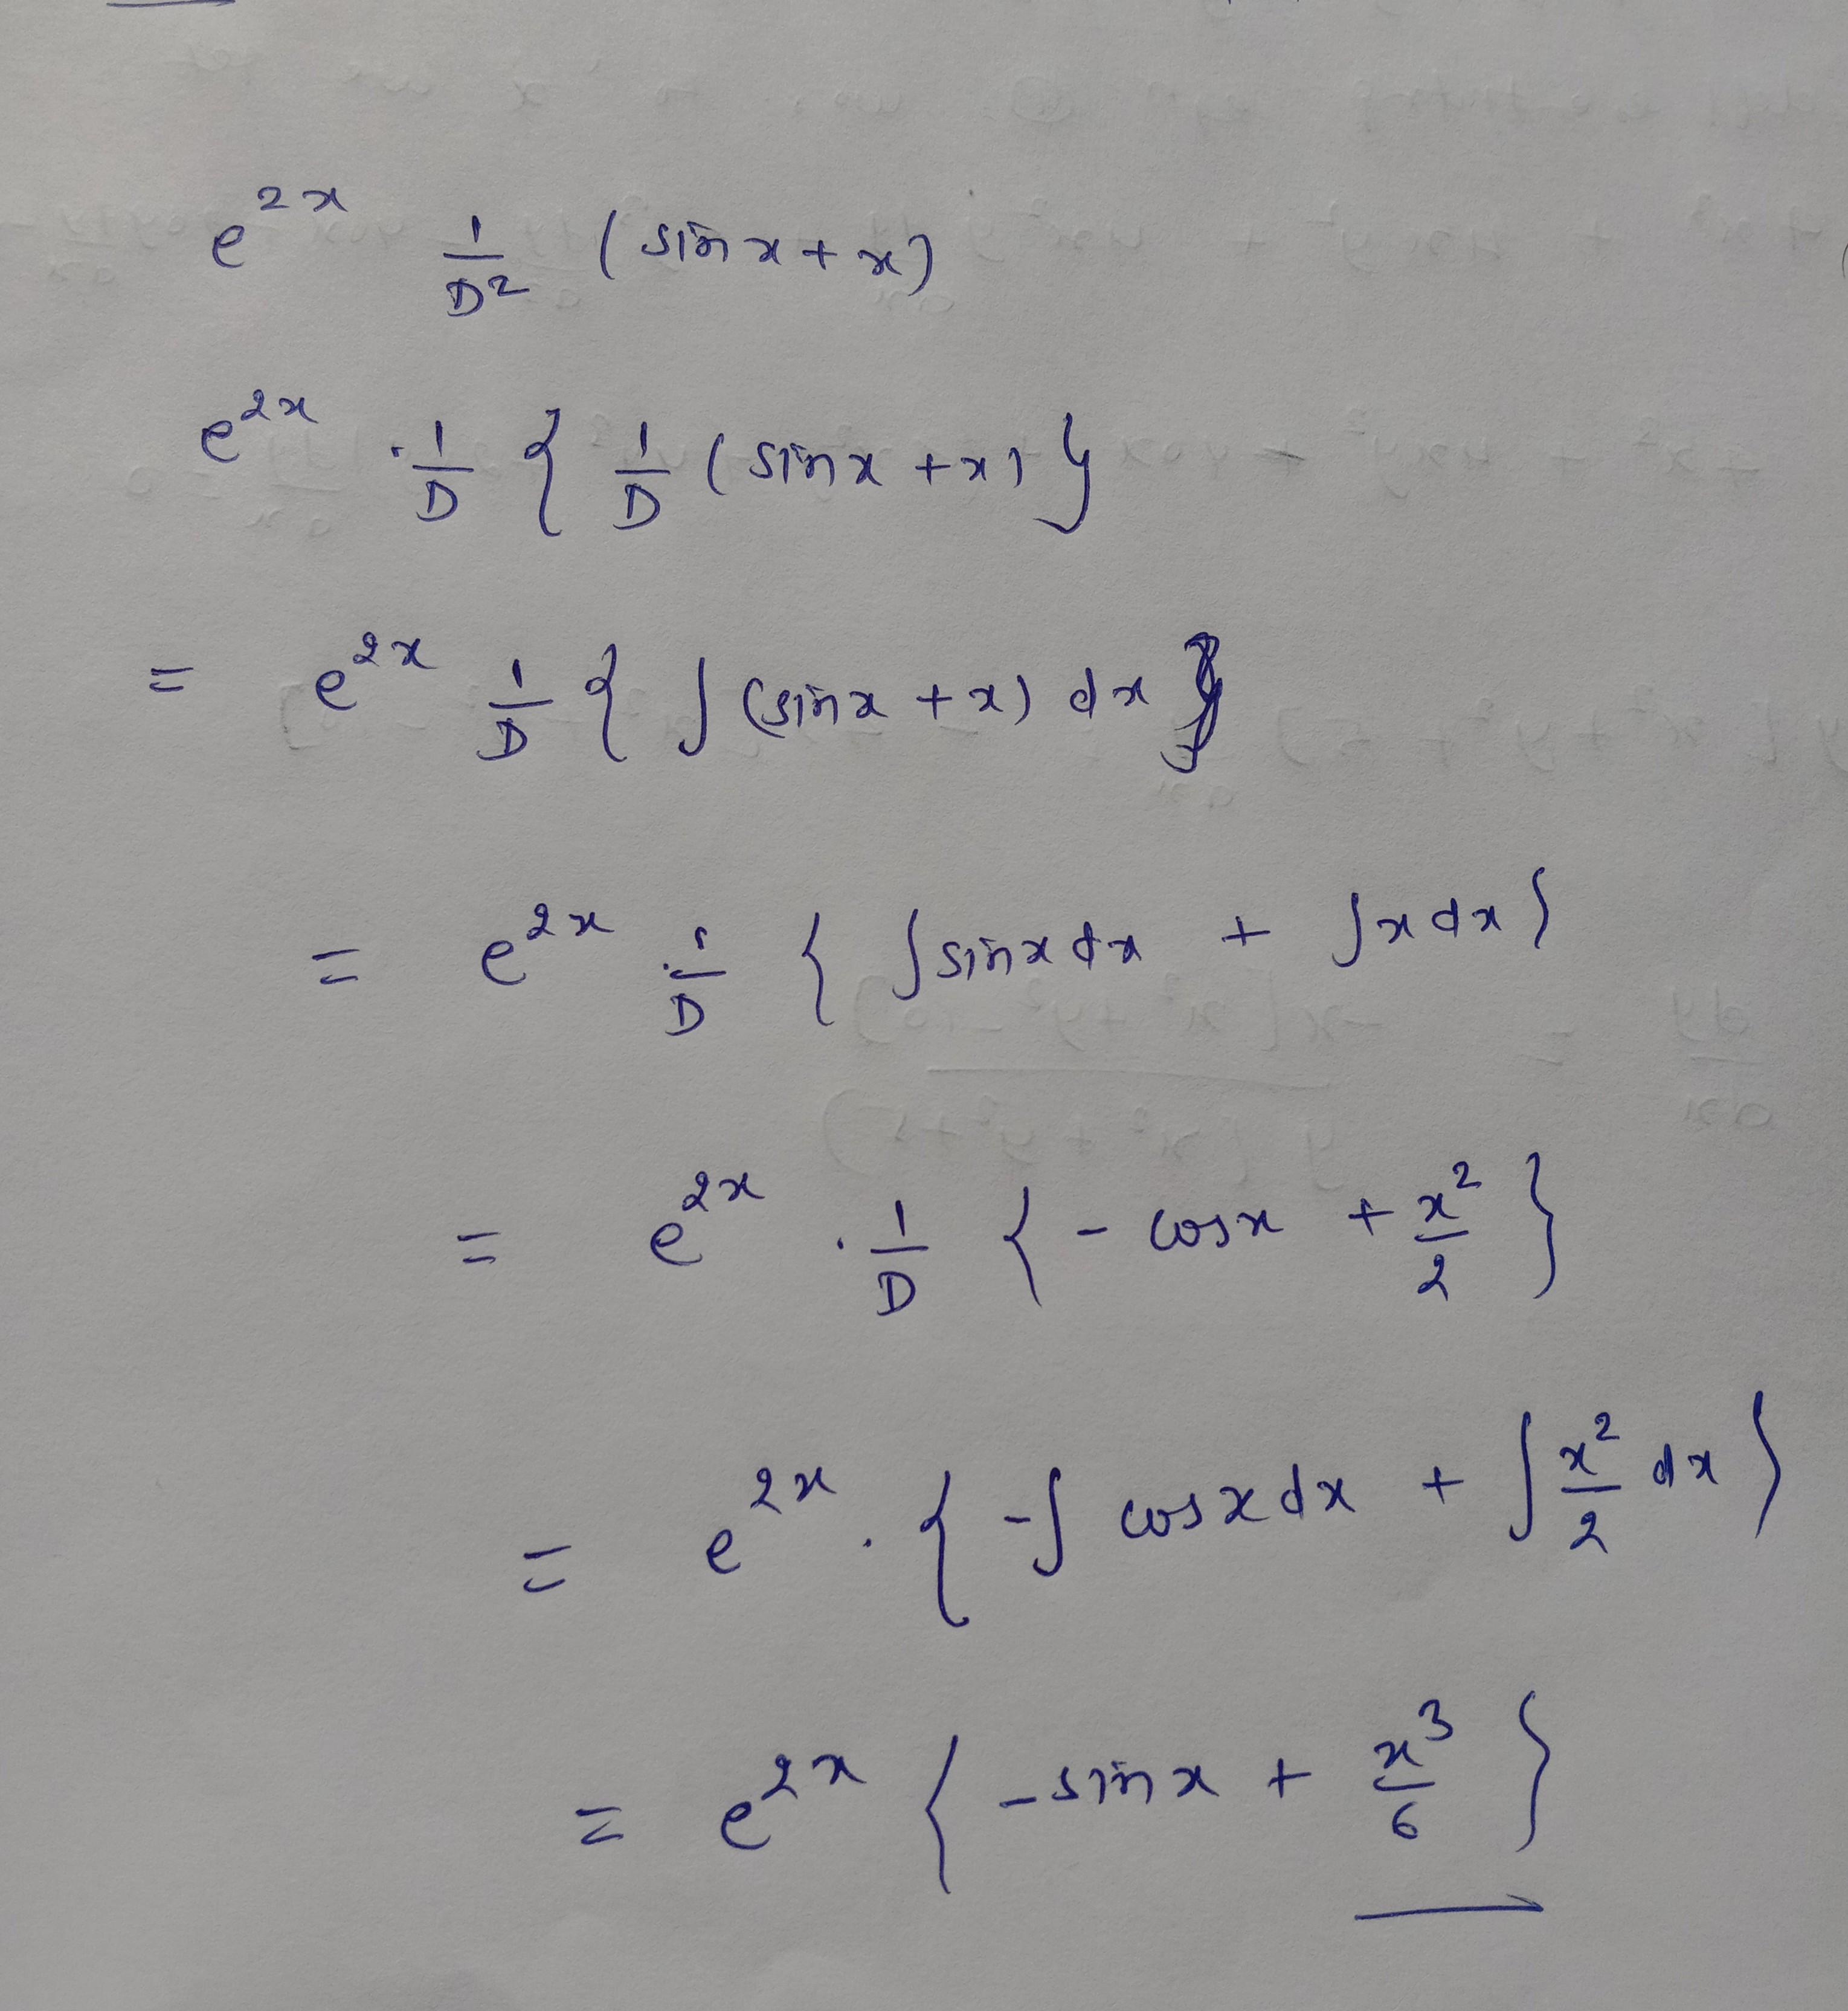 e^{2x} 1/D² (sin x + x)
e^{2x} · 1/D { 1/D (sin x + x) }
= e^{2x} 1/D { ∫ (sin x + x) dx }
= e^{2x} · 1/D { ∫ sin x dx + ∫ x dx }
= e^{2x} · 1/D { - cos x + x²/2 }
= e^{2x} · { -∫ cos x dx + ∫ x²/2 dx }
= e^{2x} { - sin x + x³/6 }